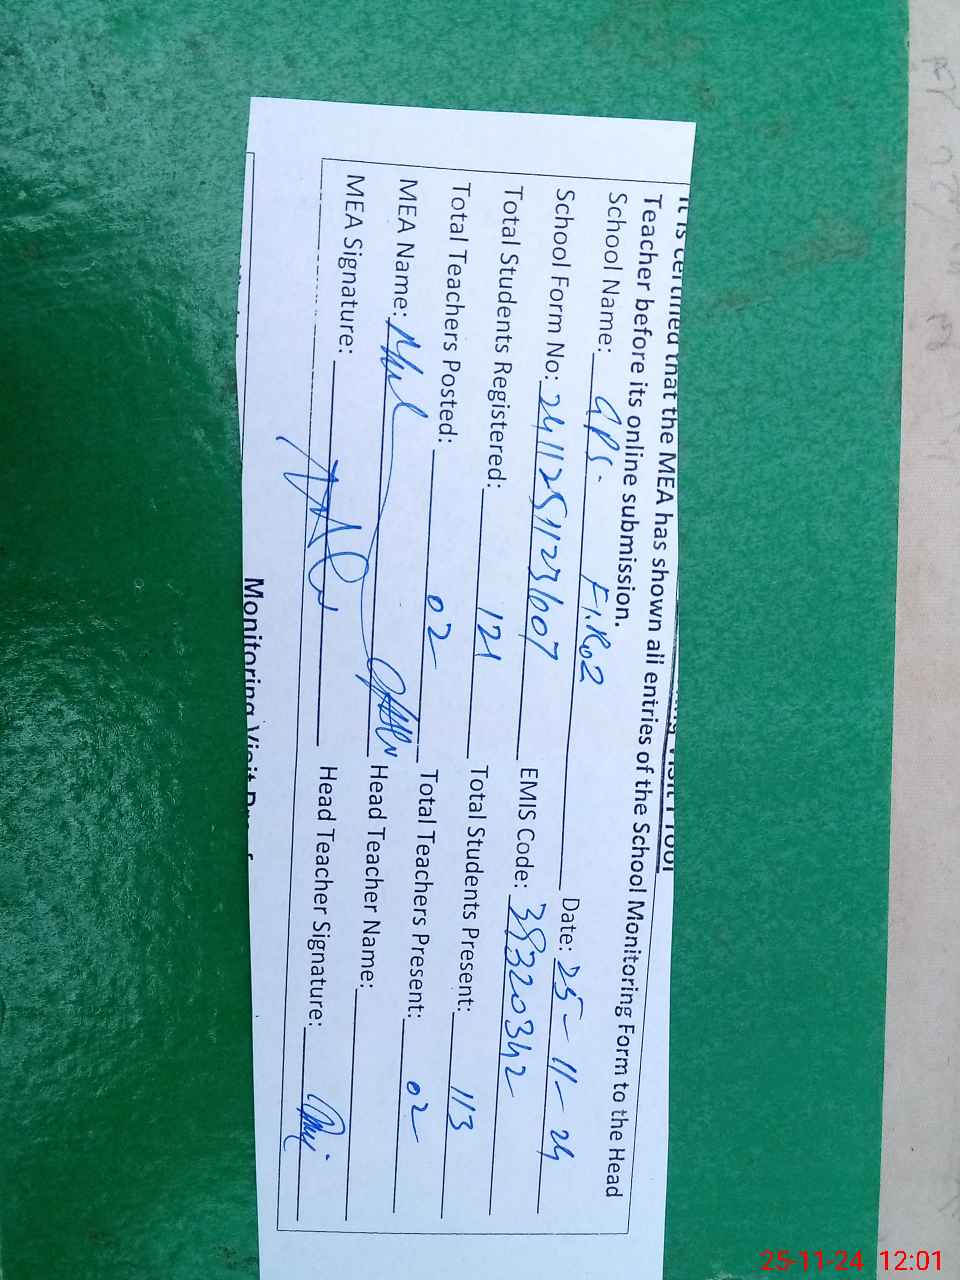 It is certified that the MEA has shown all entries of the School Monitoring Form to the Head
Teacher before its online submission.
School Name: GPS. Date: 25-11-24
School Form No: EMIS Code: 38320342
Total Students Registered: 121 Total Students Present: 113
Total Teachers Posted: 02 Total Teachers Present: 02
MEA Name: Head Teacher Name:
MEA Signature: Head Teacher Signature:
Monitoring Visit
25-11-24 12:01